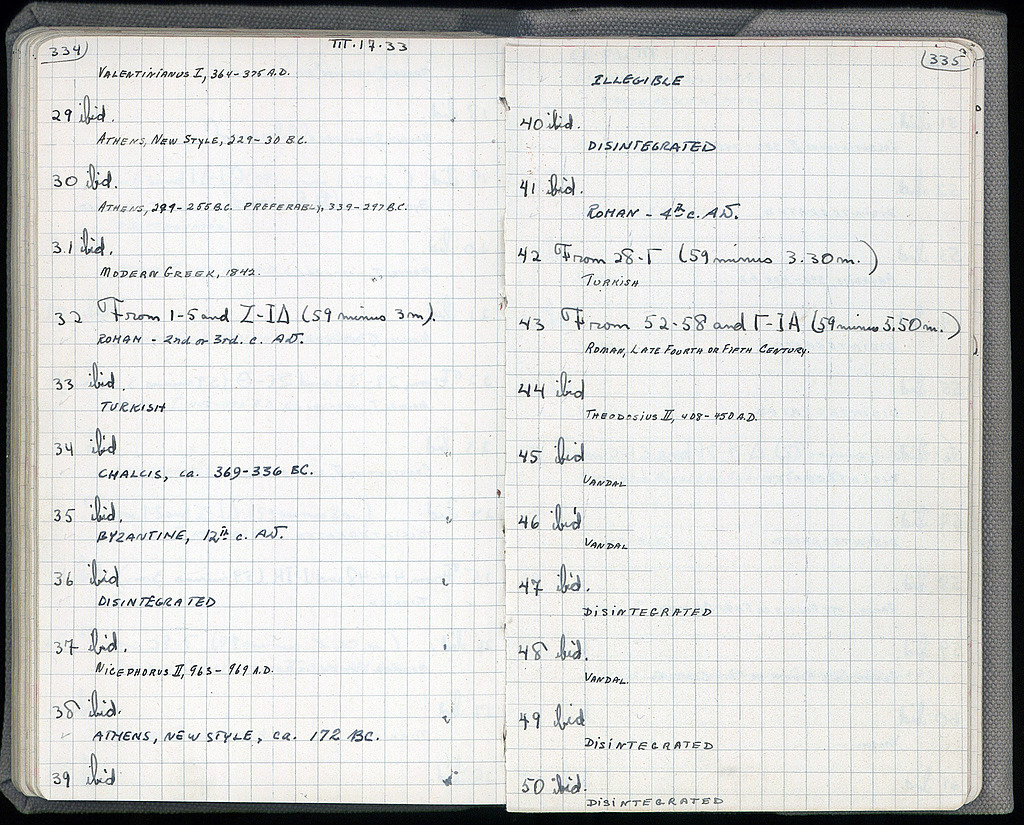 334
III·17·33
VALENTINIANUS I, 364-375 A.D.
29 ibid.
ATHENS, NEW STYLE, 229-30 B.C.
30 ibid.
ATHENS, 299-255 B.C. PREFERABLY, 339-297 B.C.
31 ibid.
MODERN GREEK, 1842.
32 From 1-5 and Ζ-ΙΔ (59 minus 3m).
ROMAN - 2nd or 3rd. c. A.D.
33 ibid.
TURKISH
34 ibid
CHALCIS, ca. 369-336 BC.
35 ibid.
BYZANTINE, 12th c. A.D.
36 ibid
DISINTEGRATED
37 ibid.
NICEPHORUS II, 963-969 A.D.
38 ibid.
ATHENS, NEW STYLE, ca. 172 BC.
39 ibid
335
ILLEGIBLE
40 ibid.
DISINTEGRATED
41 ibid.
ROMAN - 4th c. A.D.
42 From 28-Γ (59 minus 3.30m.)
TURKISH
43 From 52-58 and Γ-ΙΑ (59 minus 5.50m.)
ROMAN, LATE FOURTH OR FIFTH CENTURY.
44 ibid
THEODOSIUS II, 408-450 A.D.
45 ibid
VANDAL
46 ibid
VANDAL
47 ibid.
DISINTEGRATED
48 ibid.
VANDAL.
49 ibid
DISINTEGRATED
50 ibid.
DISINTEGRATED